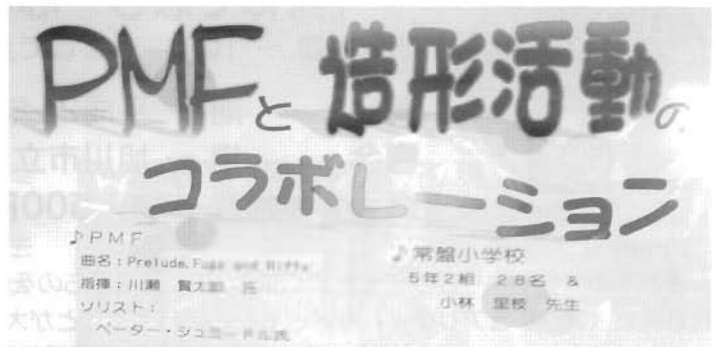 PMFと造形活動の
コラボレーション
♪PMF
曲名：Prelude, Fugue and Riffs
指揮：川瀬 賢太郎 氏
ソリスト：
ペーター・シュミードル氏
♪常盤小学校
5年2組 28名 &
小林 里枝 先生